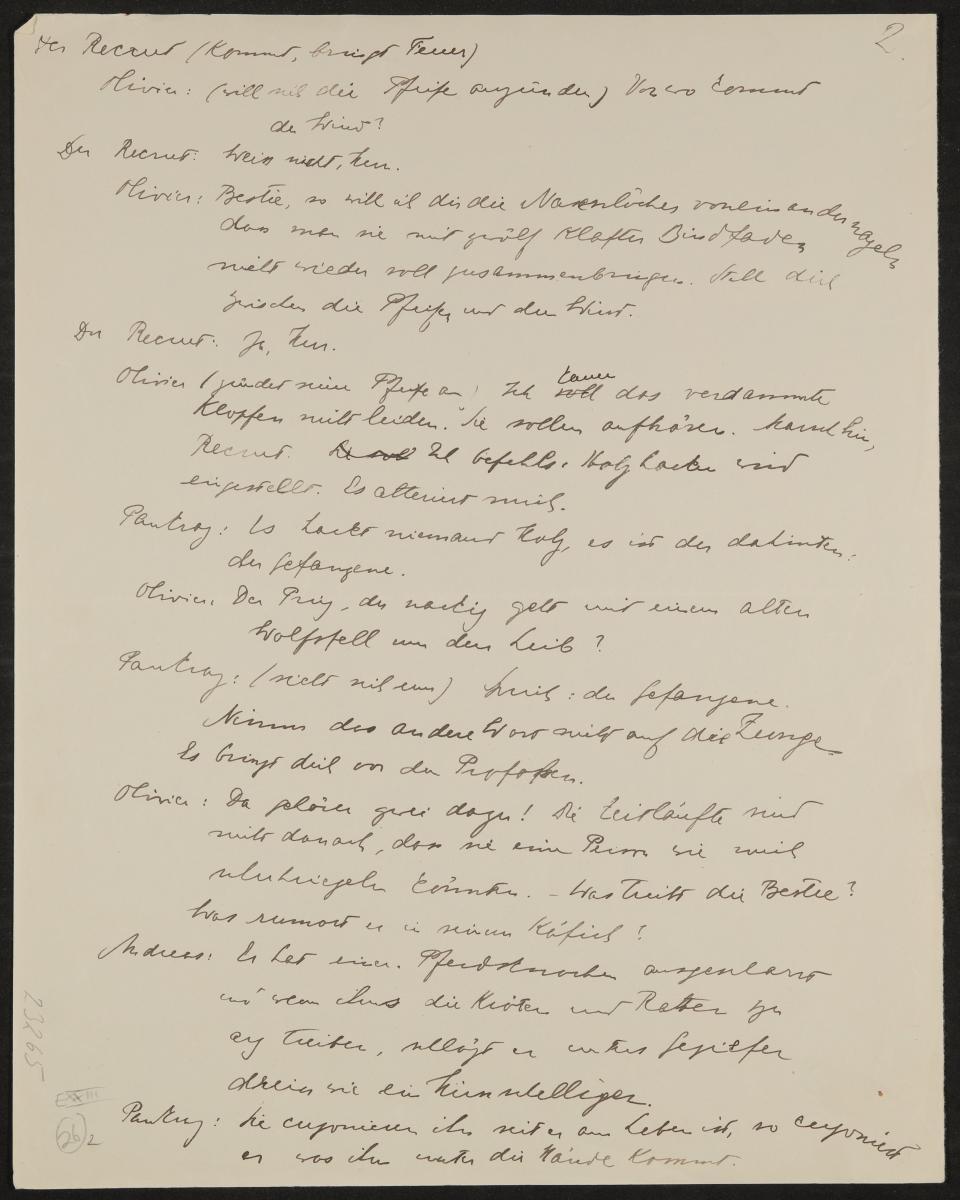 2.
Der Recrut (kommt, bringt Feuer)
Olivier: (will sich die Pfeife anzünden) Von wo kommt
der Wind?
Der Recrut: Weiss nicht, Herr.
Olivier: Bestie, so will ich dir die Nasenlöcher voneinandernageln
dass man sie mit zwölf Klafter Bindfaden
nicht wieder soll zusammenbringen. Stell dich
zwischen die Pfeife und den Wind.
Der Recrut: Ja, Herr.
Olivier (zündet seine Pfeife an) Ich soll kann das verdammte
Klopfen nicht leiden. Sie sollen aufhören. Marsch hin,
Recrut. Ich befehls: Holzhacken wird
eingestellt. Es alteriert mich.
Pankraz: Es hackt niemand Holz, es ist der dahinten:
der Gefangene.
Olivier: Der Prinz, der nackig geht mit einem alten
Wolfsfell um den Leib?
Pankraz: (sieht sich um) Sprich: der Gefangene.
Nimm das andere Wort nicht auf die Zunge
Es bringt dich vor den Profossen.
Olivier: Da gehören zwei dazu! Die Zeitläufte sind
nicht danach, dass sie eine Person wie mich
schuhriegeln könnten. – Was treibt die Bestie?
Was rumort er in seinem Käfich?
Andreas: Er hat einen Pferdsknochen ausgescharrt
und wenn ihms die Kröten und Ratten zu
arg treiben, schlägt er unters Geziefer
drein wie ein Hirnschelliger.
Pankraz: Sie cujonieren ihn seit er am Leben ist, so cujoniert
er was ihm unter die Hände kommt.
23265
XXIII
26
2